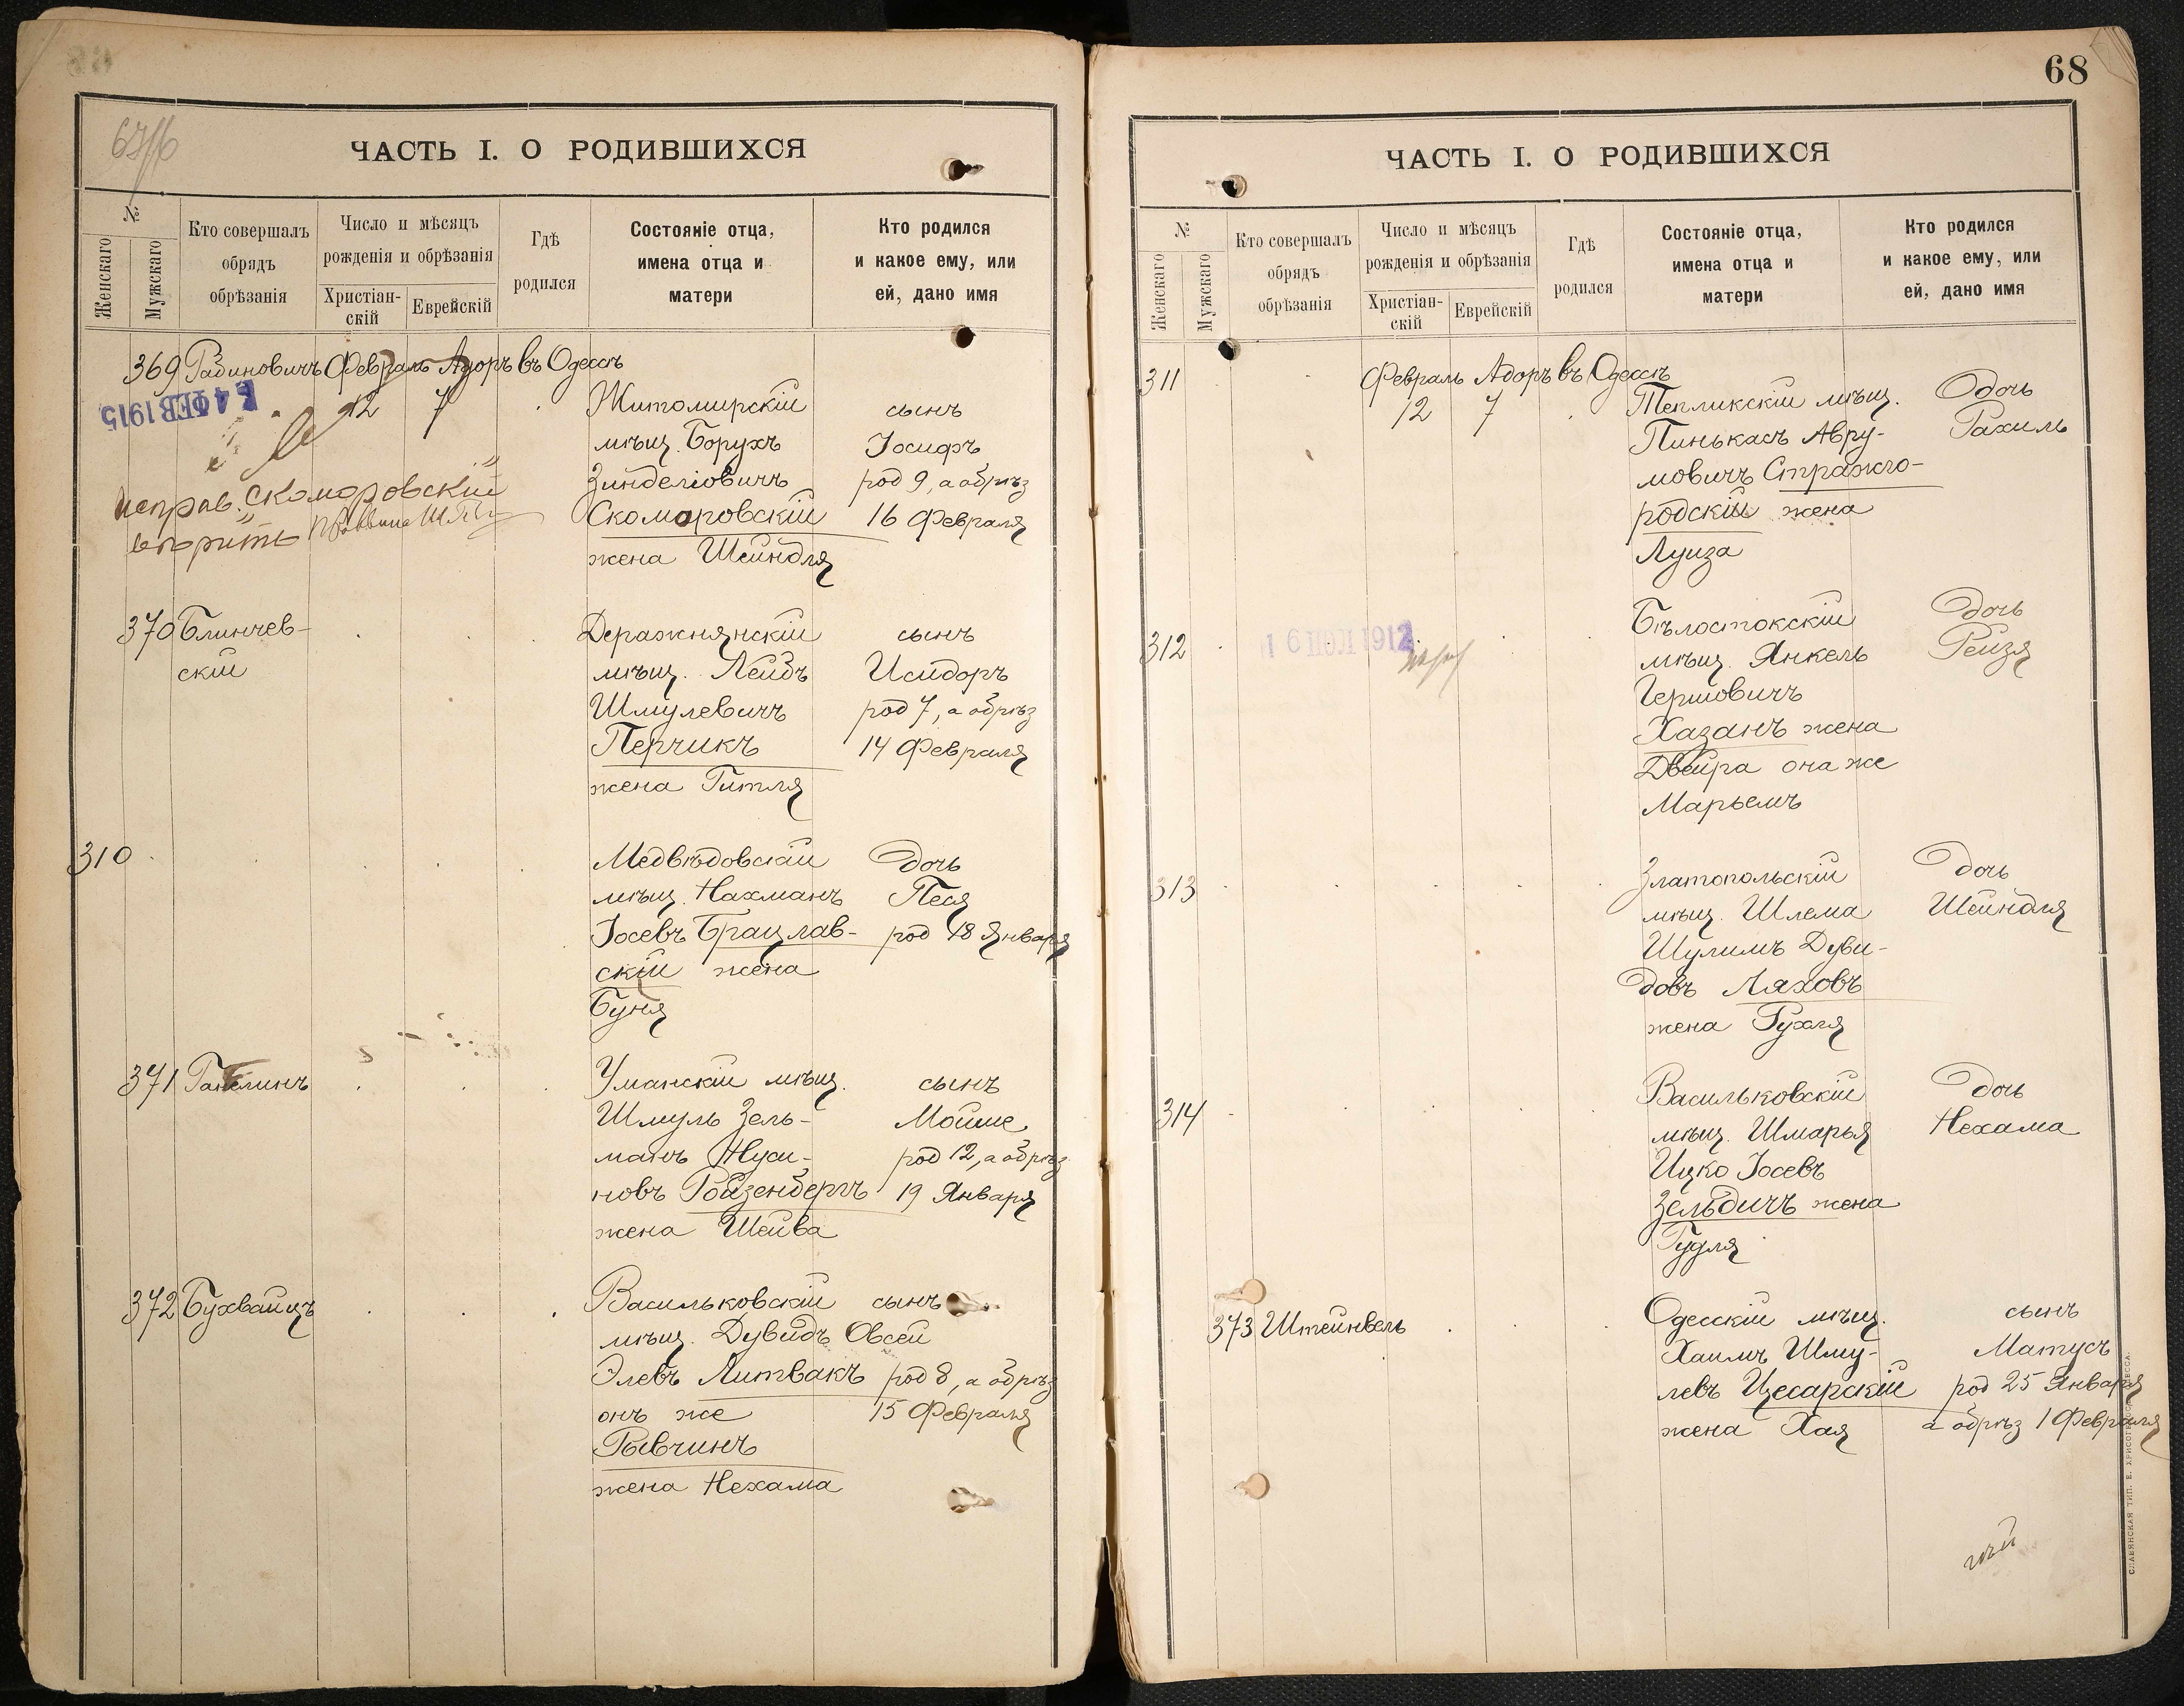 ЧАСТЬ I. О РОДИВШИХСЯ
№
Женскаго
Мужскаго
Кто совершалъ
обрядъ
обрѣзанія
Число и мѣсяцъ
рожденія и обрѣзанія
Христіан-
скій
Еврейскій
Гдѣ
родился
Состояніе отца,
имена отца и
матери
Кто родился
и какое ему, или
ей, дано имя
369 Рабиновичъ Февраль Адоръ въ Одессѣ
ФЕВ 1915
12 7
Житомирскій
мѣщ. Борухъ
Зинделіовичъ
Скомаровскій
жена Шейндля
сынъ
Іосифъ
род 9, а обрѣз
16 Февраля
исправ. "Скомаровскій"
вѣрить
370 Блинчев-
скій
Деражнянскій
мѣщ. Лейбъ
Шмулевичъ
Перчикъ
жена Гитля
сынъ
Исидоръ
род 7, а обрѣз
14 Февраля
310
Медвѣдовскій
мѣщ. Нахманъ
Іосевъ Брацлав-
скій жена
Буня
дочь
Песя
род 18 Января
371
Уманскій мѣщ.
Шмуль Зель-
манъ Нуси-
новъ Ройзенбергъ
жена Шейва
сынъ
Мойше
род 12, а обрѣз
19 Января
372 Бухвайцъ
Васильковскій
мѣщ. Дувидъ Овсей
Элевъ Литвакъ
онъ же
Рывчинъ
жена Нехама
сынъ
род 8, а обрѣз
15 Февраля
68
ЧАСТЬ I. О РОДИВШИХСЯ
№
Женскаго
Мужскаго
Кто совершалъ
обрядъ
обрѣзанія
Число и мѣсяцъ
рожденія и обрѣзанія
Христіан-
скій
Еврейскій
Гдѣ
родился
Состояніе отца,
имена отца и
матери
Кто родился
и какое ему, или
ей, дано имя
311 Февраль Адоръ въ Одессѣ
12 7
Тепликскій мѣщ.
Пинькасъ Авру-
мовичъ Стражго-
родскій жена
Луиза
дочь
Рахиль
312
Бѣлостокскій
мѣщ. Янкель
Гершовичъ
Хазанъ жена
Двейра она же
Марьемъ
дочь
Рейзя
313
Златопольскій
мѣщ. Шлема
Шулимъ Дуви-
довъ Ляховъ
жена Рухля
дочь
Шейндля
314
Васильковскій
мѣщ. Шмарья
Ицко Іосевъ
Зельдичъ жена
Гудля
дочь
Нехама
373 Штейнвель
Одесскій мѣщ.
Хаимъ Шму-
левъ Цесарскій
жена Хая
сынъ
Матусъ
род 25 Января
а обрѣз 1 Февраля